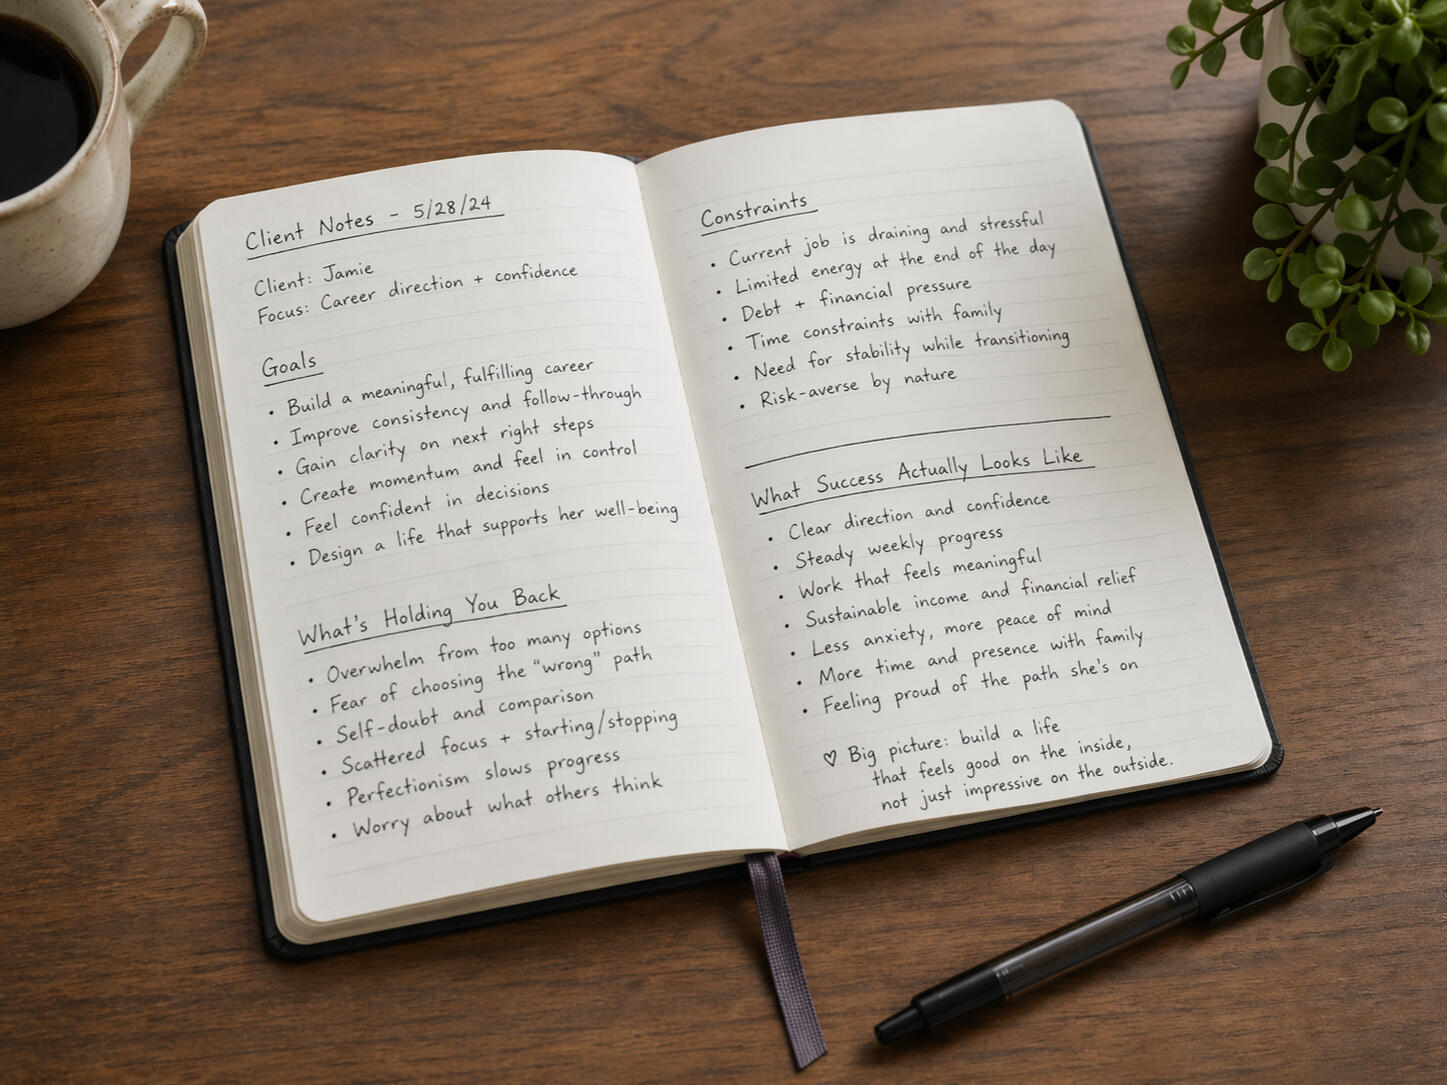 Client Notes - 5/28/24
Client: Jamie
Focus: Career direction + confidence
Goals
• Build a meaningful, fulfilling career
• Improve consistency and follow-through
• Gain clarity on next right steps
• Create momentum and feel in control
• Feel confident in decisions
• Design a life that supports her well-being
What's Holding You Back
• Overwhelm from too many options
• Fear of choosing the "wrong" path
• Self-doubt and comparison
• Scattered focus + starting/stopping
• Perfectionism slows progress
• Worry about what others think
Constraints
• Current job is draining and stressful
• Limited energy at the end of the day
• Debt + financial pressure
• Time constraints with family
• Need for stability while transitioning
• Risk-averse by nature
What Success Actually Looks Like
• Clear direction and confidence
• Steady weekly progress
• Work that feels meaningful
• Sustainable income and financial relief
• Less anxiety, more peace of mind
• More time and presence with family
• Feeling proud of the path she's on
♡ Big picture: build a life
that feels good on the inside,
not just impressive on the outside.